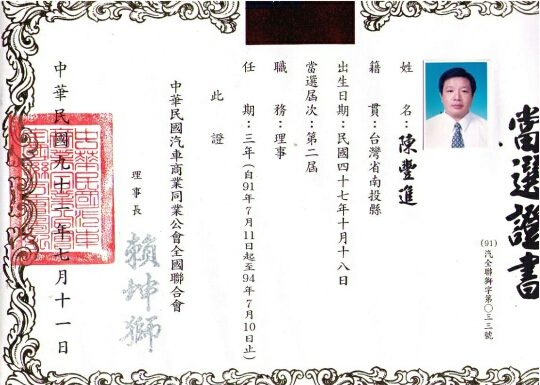 當選證書
(91)汽全聯獅字第〇三三號
姓名：陳豐進
籍貫：台灣省南投縣
出生日期：民國四十七年十月十八日
當選屆次：第二屆
職務：理事
任期：三年（自91年7月11日起至94年7月10日止）
此證
中華民國汽車商業同業公會全國聯合會
理事長
賴坤獅
中華民國九十一年七月十一日